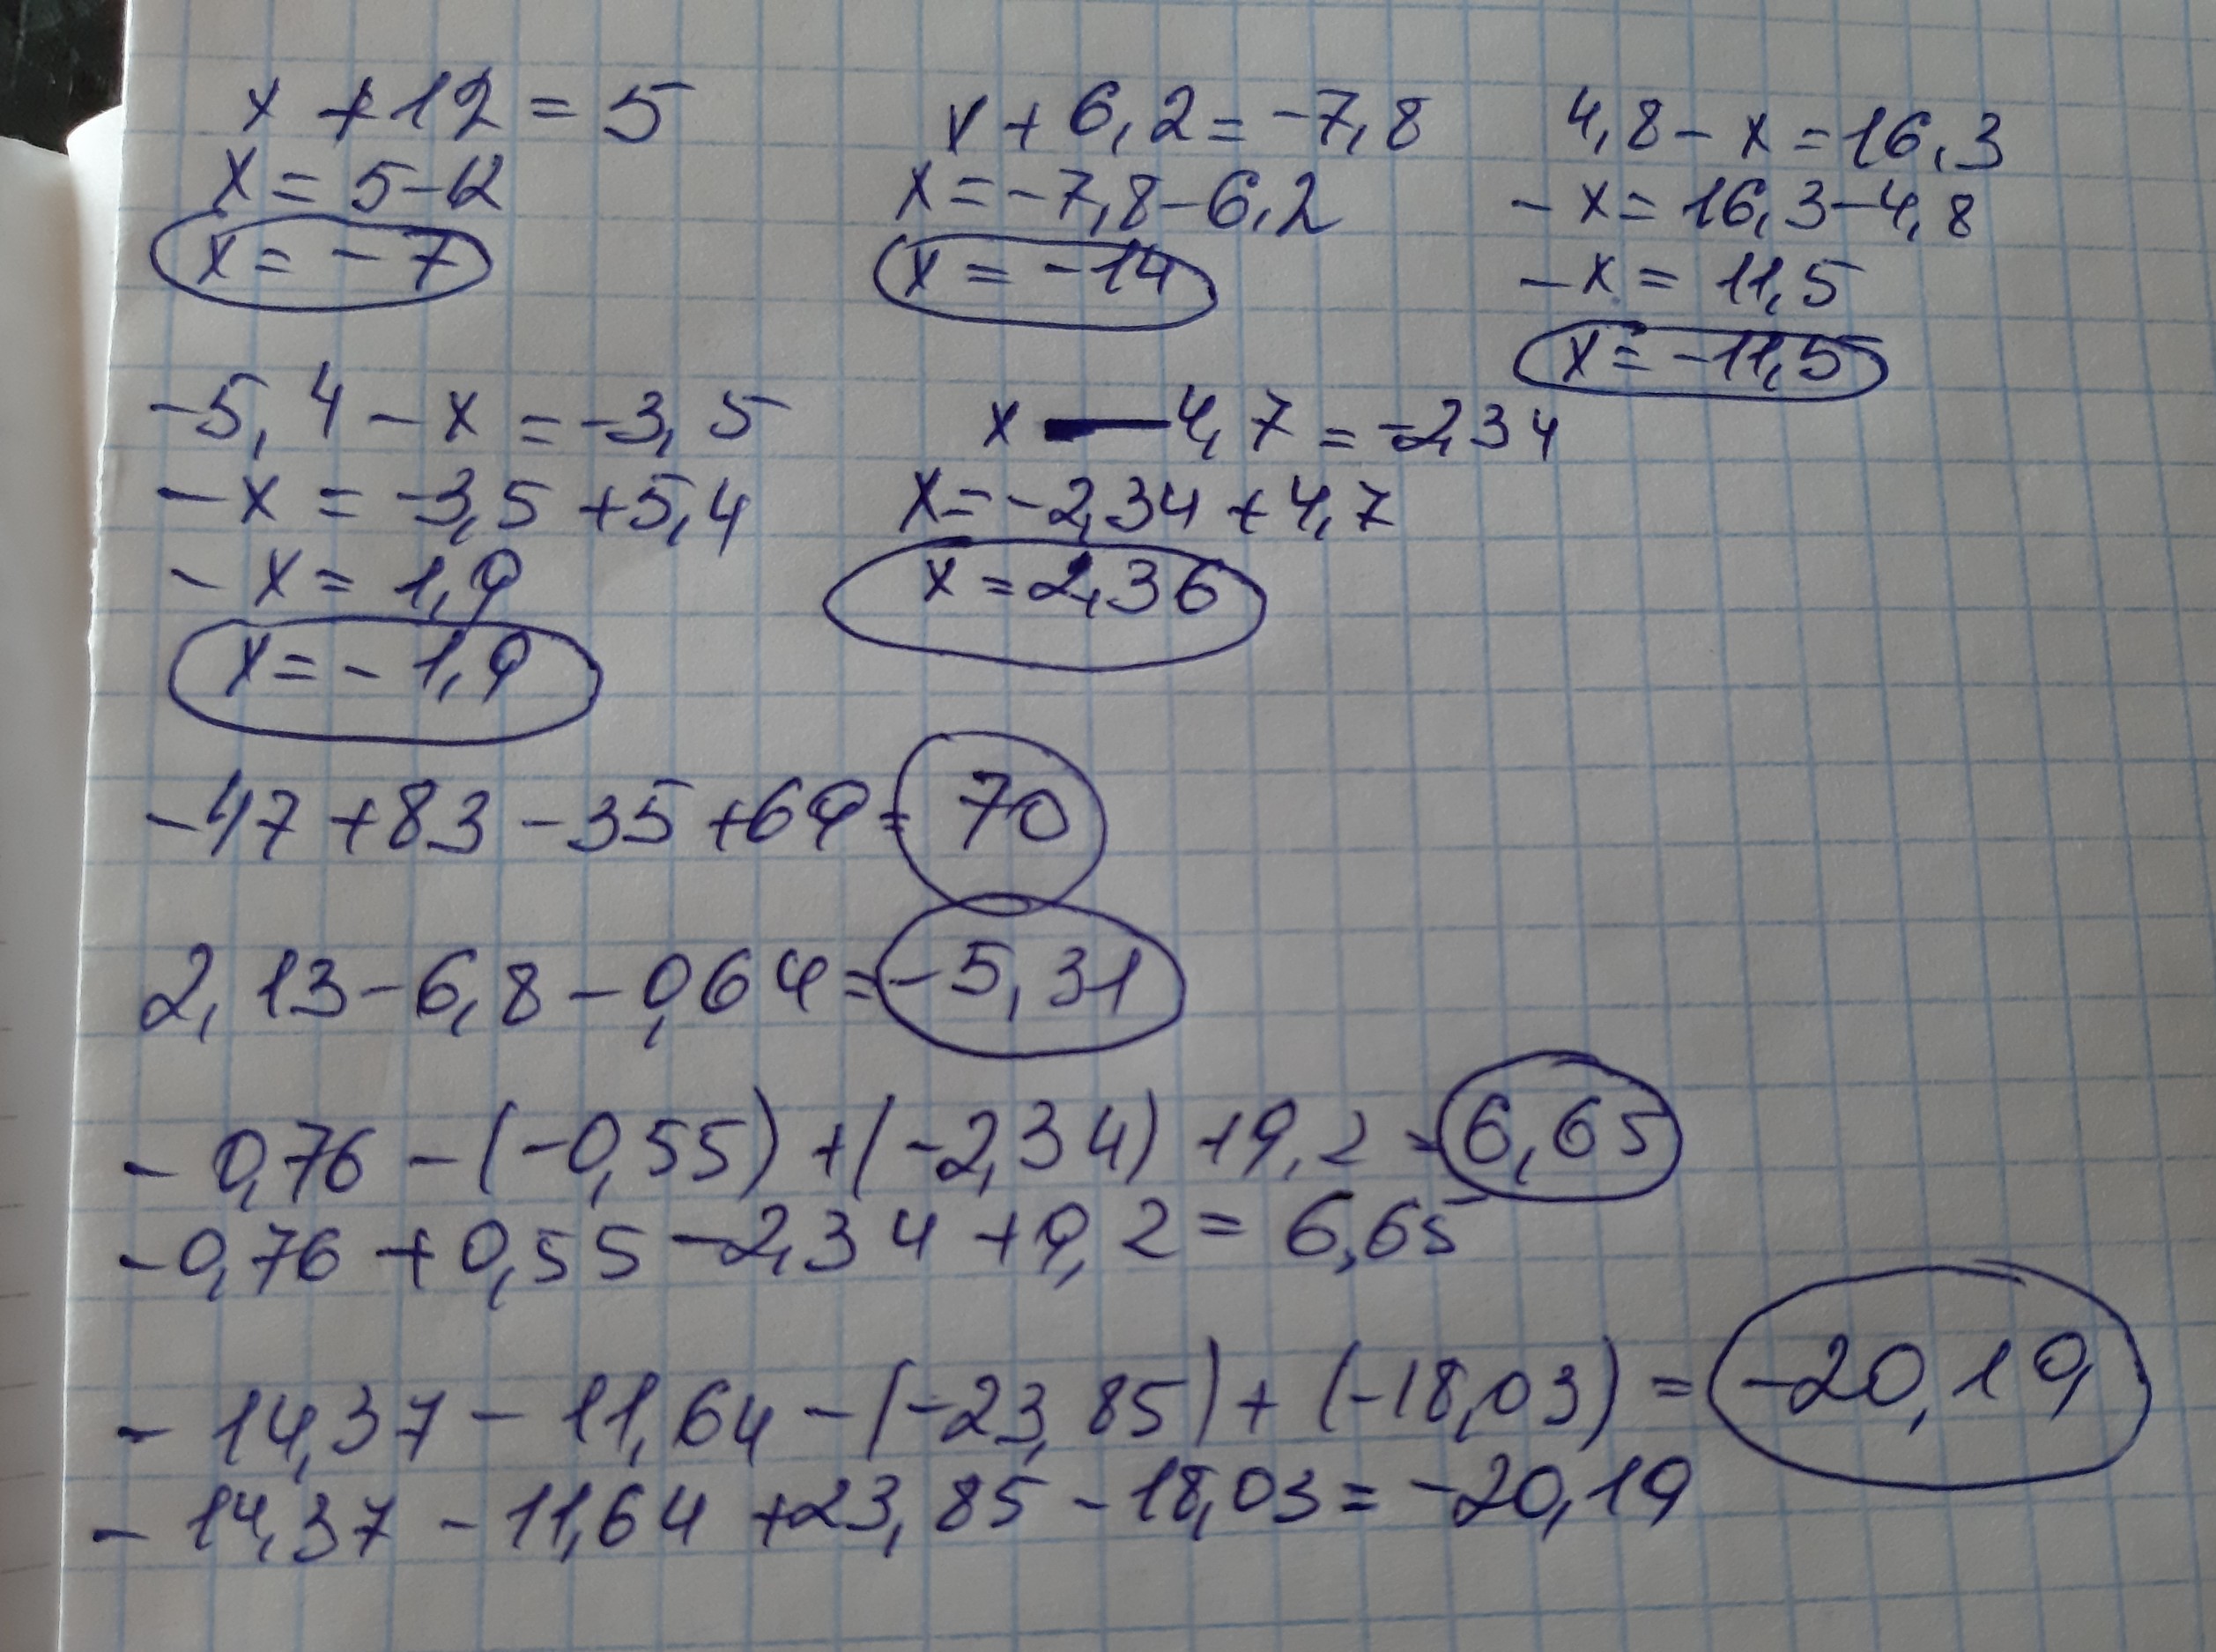 x + 12 = 5
x = 5 - 12
x = - 7
x + 6,2 = -7,8
x = -7,8 - 6,2
x = -14
4,8 - x = 16,3
- x = 16,3 - 4,8
- x = 11,5
x = -11,5
-5,4 - x = -3,5
- x = -3,5 + 5,4
- x = 1,9
x = - 1,9
x - 4,7 = -2,34
x = -2,34 + 4,7
x = 2,36
-47 + 83 - 35 + 69 = 70
2,13 - 6,8 - 0,64 = -5,31
- 0,76 - (-0,55) + (-2,34) + 9,2 = 6,65
-0,76 + 0,55 - 2,34 + 9,2 = 6,65
- 14,37 - 11,64 - (-23,85) + (-18,03) = -20,19
- 14,37 - 11,64 + 23,85 - 18,03 = -20,19